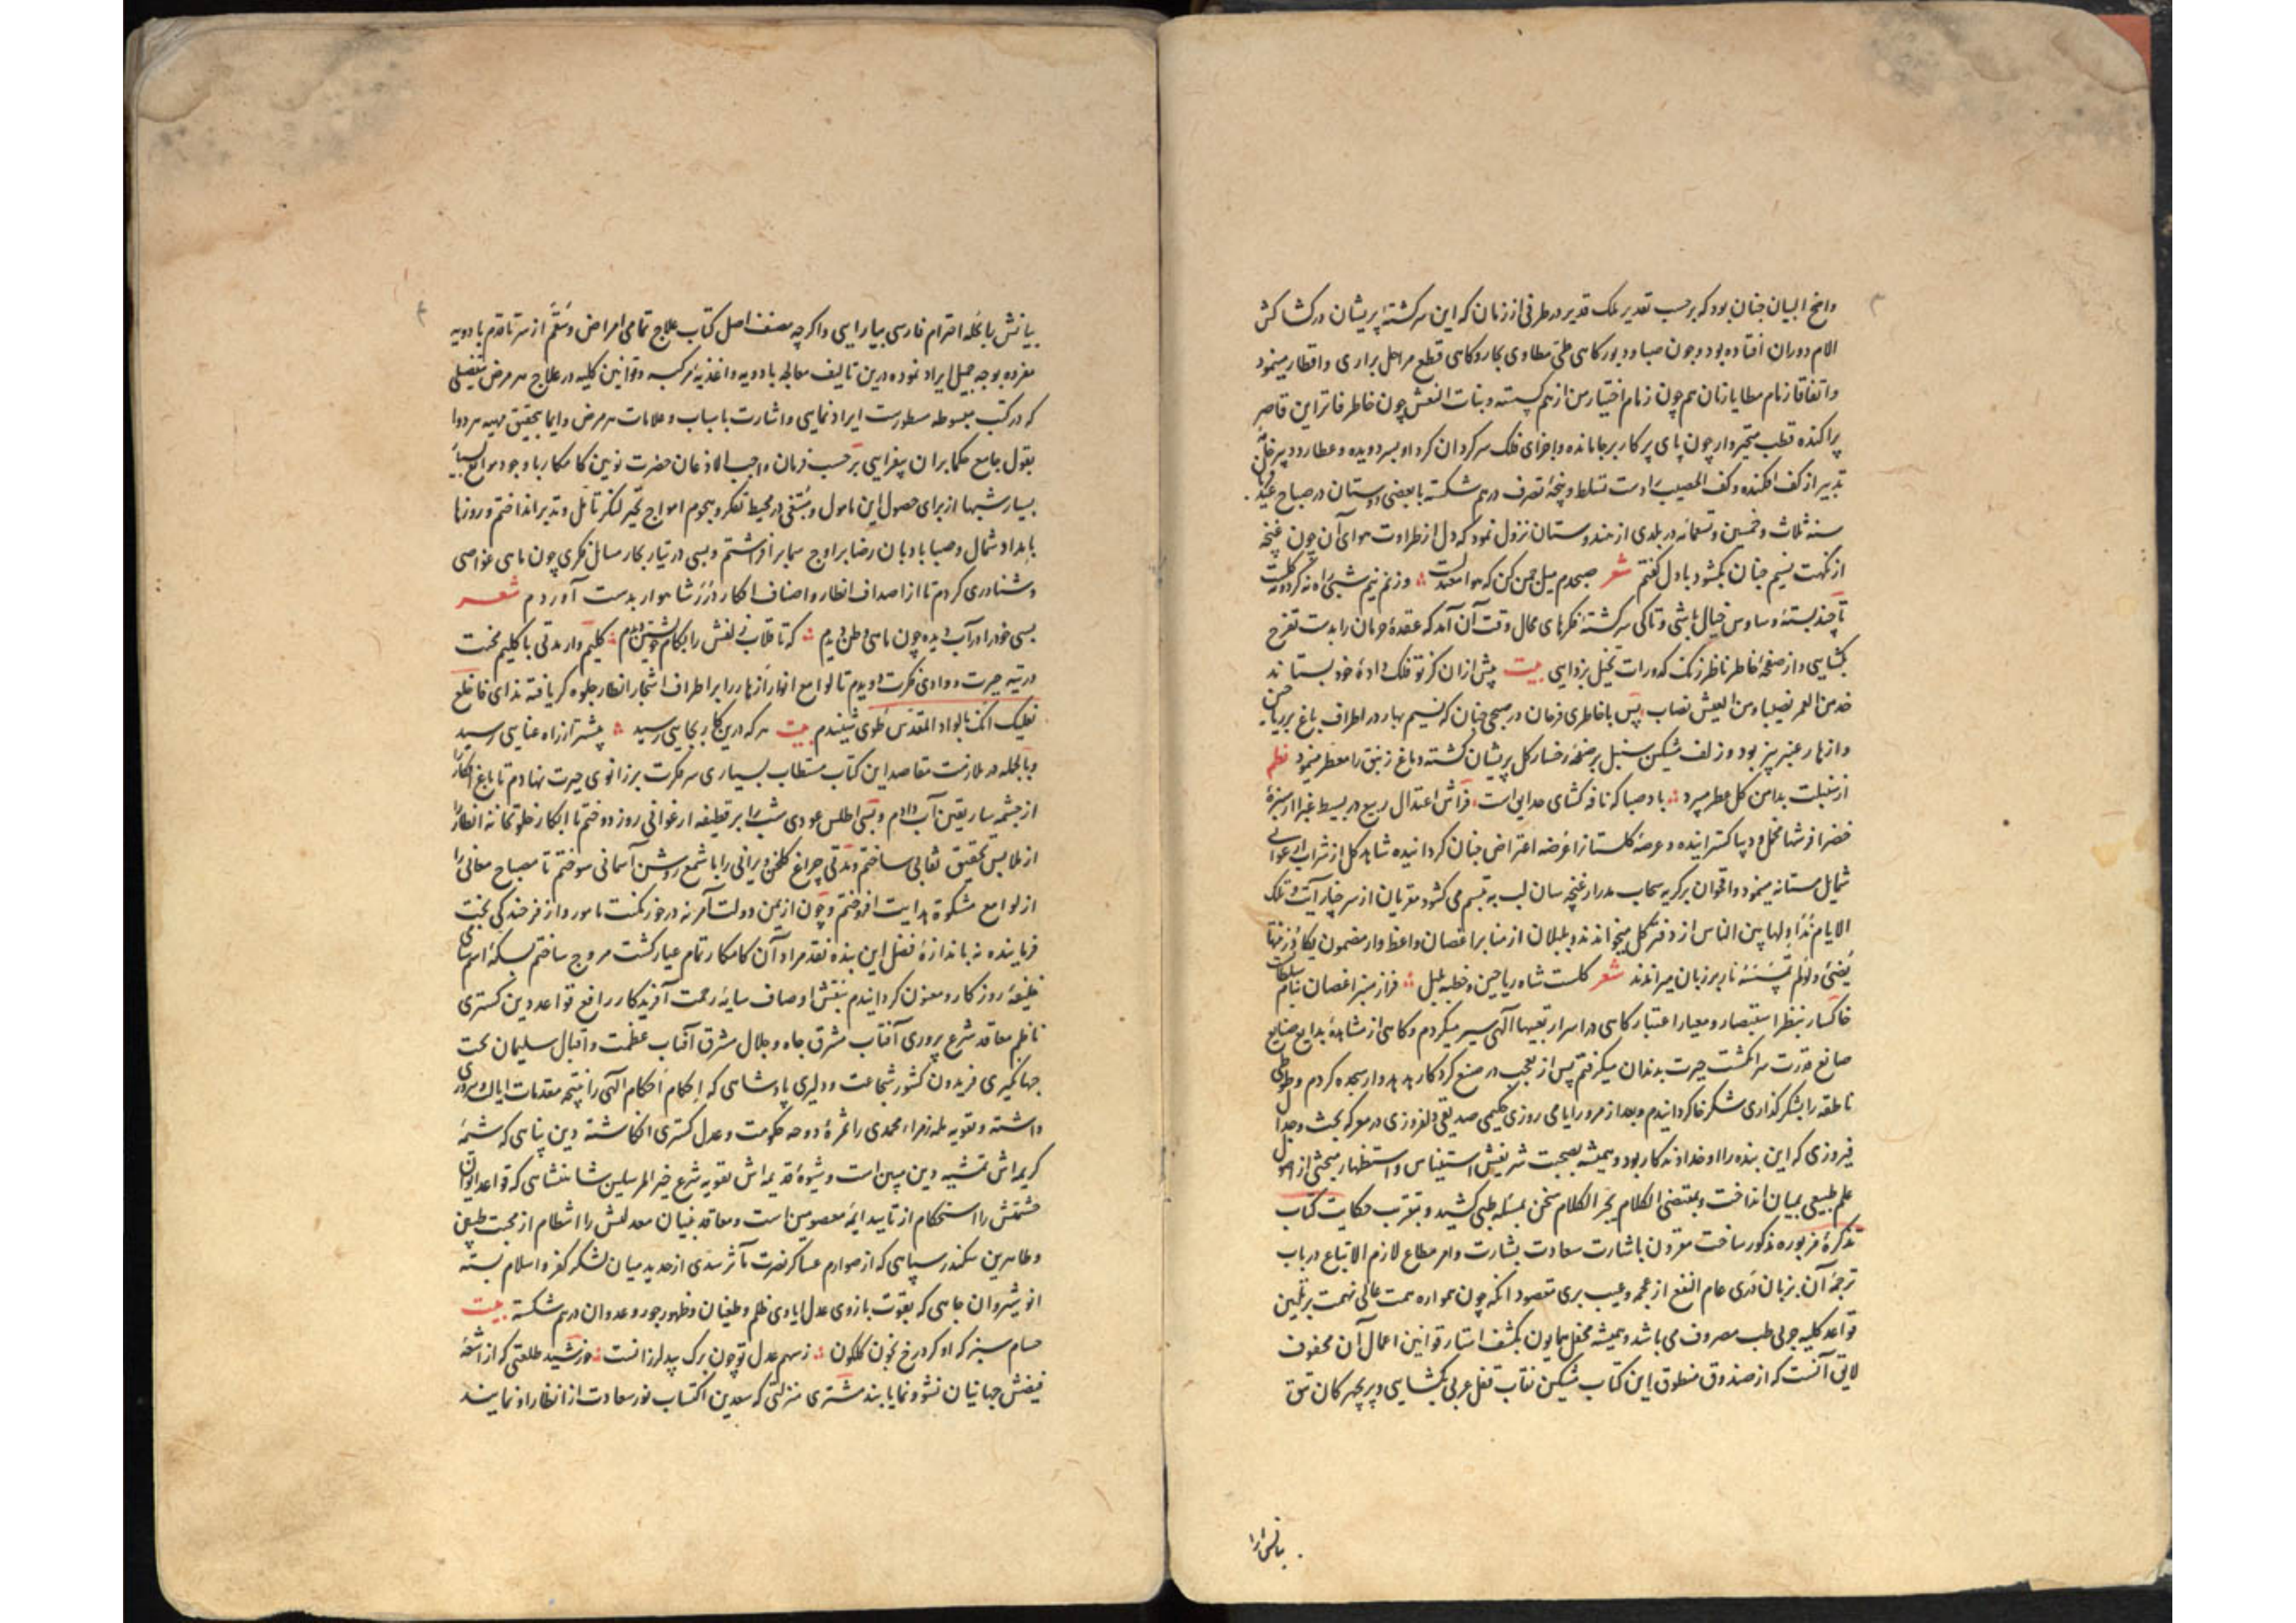 واضح البیان چنان بود که بر حسب تقدیر ملک قدیر در طرفی از زمان که این سرگشته پریشان در کشاکش
الام دوران افتاده بود و چون صبا و دبور گاهی طی مطاوی بحار و گاهی قطع مراحل براری و اقطار مینمود
و اتفاقا زمام مطایا زنان هم چون زمام اختیار من از هم گسسته و بنات النعش چون خاطر فاتر این قاصر
پراکنده قطب متحیر وار چون پای پرکار بر جا مانده و اجزای فلک سرگردان گرد او بسر دویده و عطارد دبیر
تدبیر از کف افکنده و کف الخصیب را دست تسلط و پنجهٔ تصرف درهم شکسته با بعضی دوستان در صباح عید
سنه ثلاث و خمسین و تسعمائه در بلدی از هندوستان نزول نمود که دل از طراوت هوای آن چون غنچه
از نکهت نسیم چنان بگشود با دل گفتم شعر صبحدم میل چمن کن که هوا معتدلست
تا چند بستهٔ وساوس خیال باشی و تا کی سرگشتهٔ فکرهای محال وقت آن آمد که عقدهٔ حرمان را بدست تفرح
بگشایی و از صفحهٔ خاطر ناظر زنگ کدورات تخیل بزدایی بیت پیش ازان کز تو فلک دادهٔ خود بستاند
خذ من العمر نصیبا و من العیش نصاب پس با خاطری فرحان در صبحی چنان که نسیم بهار در اطراف باغ بر ریاحین
و ازهار عنبر بیز بود و زلف مشکین سنبل بر صفحهٔ رخسار گل پریشان گشته دماغ زنبق را معطر مینمود نظم
از سنبلت بدامن گل عطر میبرد باد صبا که نافه گشای حدایق است فراش اعتدال ربیع در بسیط غبرا از سبزهٔ
خضرا فرشها مخمل و دیبا گسترانیده و عرصهٔ گلستان را عرضه اعتراض جنان گردانیده شاهد گل از شراب ارغوانی
شمایل مستانه مینمود و اقحوان بر گریه سحاب مدرار غنچه سان لب به تبسم می گشود مقریان از سر خار آیت و تلک
الایام نداولها بین الناس از دفتر گل میخواندند و بلبلان از منابر اغصان واعظ وار مضمون یکاد زیتها
یضیء و لو لم تمسسه نار بر زبان میراندند شعر گلست شاه ریاحین و خطبه بلبل فراز منبر اغصان بنام سلطان
خاکسار بنظر استبصار و معیار اعتبار گاهی در اسرار تعبیهاء الهی سیر میکردم و گاهی از مشاهدهٔ بدایع صنایع
صانع قدرت سر انگشت حیرت بدندان میگرفتم پس از تعجب در صنع کردگار هدهد وار سجده کردم و طوطی
ناطقه را بشکر گذاری شکرخا گردانیدم و بعد از مرور ایامی روزی حکیمی صدیقی دلفروزی در معرکه بحث و جدال
فیروزی که این بنده را او خداوندگار بود و همیشه بصحبت شریفش استیناس و استظهار مبحثی از اصول
علم طبیعی بمیان انداخت و بمقتضی الکلام یجر الکلام سخن بمسئله طبی کشید و بتقریب حکایت کتاب
تذکرهٔ مزبوره مذکور ساخت مقرون باشارت سعادت بشارت و امر مطاع لازم الاتباع در باب
ترجمهٔ آن بزبان دری عام النفع از عجمه و عیب بری مقصود انکه چون همواره همت عالی نهمت بر تبیین
قواعد کلیه جزئی طب مصروف می باشد و همیشه محفل همایون بکشف استار قوانین اعمال آن محفوف
لایق آنست که از صندوق منطوق این کتاب مشکین نقاب قفل عربی بگشایی و پریچهرگان تتق
بیانش را
بیانش را بحله احترام فارسی بیارایی و اگرچه مصنف اصل کتاب علاج تمامی امراض و سقم از سر تا قدم بادویه
مفرده بوجه جمیل ایراد نموده درین تالیف معالجه بادویه و اغذیه مرکبه و قوانین کلیه در علاج هر مرض تفصیلی
که در کتب مبسوطه مسطورست ایراد نمایی و اشارت باسباب و علامات هر مرض و ایما بتحقیق مهیه هر دوا
بقول جامع حکما بران بیفزایی بر حسب فرمان واجب الاذعان حضرت نوین کامکار با وجود موانع
بسیار شبها از برای حصول این مامول و مبتغی در محیط تفکر و هجوم امواج تحیر لنگر تامل و تدبر انداختم و روزها
بامداد شمال و صبا بادبان رضا بر اوج سما بر افراشتم و بسی در تیار بحار مسایل فکری چون ماهی غواصی
و شناوری کردم تا از اصداف انظار و اصناف افکار درر شاهوار بدست آوردم شعر
بسی خود را در آب دیده چون ماهی وطن دیدم که تا قلاب زلفش را بکام خویشتن دیدم کلیم وار مدتی با گلیم محنت
در تیه حیرت و وادی فکرت دویدم تا لوامع انوار از نار را بر اطراف اشجار انظار جلوه گر یافته ندای فاخلع
نعلیک انک بالواد المقدس طوی شنیدم بیت هر که درین کار بجایی رسید بیشتر از راه عنایی رسید
و بالجمله در ملازمت مقاصد این کتاب مستطاب بسیاری سر فکرت بر زانوی حیرت نهادم تا باغ افکار را
از چشمه سار یقین آب دادم و بسی اطلس عودی شب را بر قطیفه ارغوانی روز دوختم تا ابکار خلوتخانه انظار را
از ملابس تحقیق نقابی ساختم و مدتی چراغ گلخن ویرانی را با شمع روشن آسمانی سوختم تا مصباح معانی را
از لوامع مشکوة هدایت افروختم و چون از یمن دولت در خور مکنت نامور و از فرخندگی بخت
فزاینده نه باندازهٔ فضل این بنده نقد مراد آن کامکار تمام عیار گشت مروج ساختم بسکهٔ اسم سامی
خلیفهٔ روزگار و معنون گردانیدم بنقش اوصاف سایهٔ رحمت آفریدگار رافع قواعد دین گستری
ناظم معاقد شرع پروری آفتاب مشرق جاه و جلال مشرق آفتاب عظمت و اقبال سلیمان تخت
جهانگیری فریدون کشور شجاعت و دلیری پادشاهی که احکام احکام الهی را نتیجه مقدمات ایالت و سروری
داشته و تقویه مله زهراء محمدی را ثمرهٔ دوحه حکومت و عدل گستری انگاشته دین پناهی که شیمهٔ
کریمه اش تمشیه دین مبین است و شیوهٔ قدیمه اش تقویه شرع خیر المرسلین شاهنشاهی که قواعد ایوان
حشمتش را استحکام از تایید ایمهٔ معصومین است و معاقد بنیان معدلتش را انتظام از محبت طیبین
و طاهرین سکندر سپاهی که از صوارم عساکر نصرت مآثر سدی از حدید میان لشکر کفر و اسلام بسته
انوشیروان جاهی که بقوت بازوی عدل ایادی ظلم و طغیان و ظهور جور و عدوان درهم شکسته بیت
حسام سبز که او کرد رخ بخون گلگون ز سهم عدل تو چون برگ بید لرزانست خورشید طلعتی که از اشعهٔ
فیضش جهانیان نشو و نما یابند مشتری منزلتی که سعدین اکتساب نور سعادت از انظار او نمایند